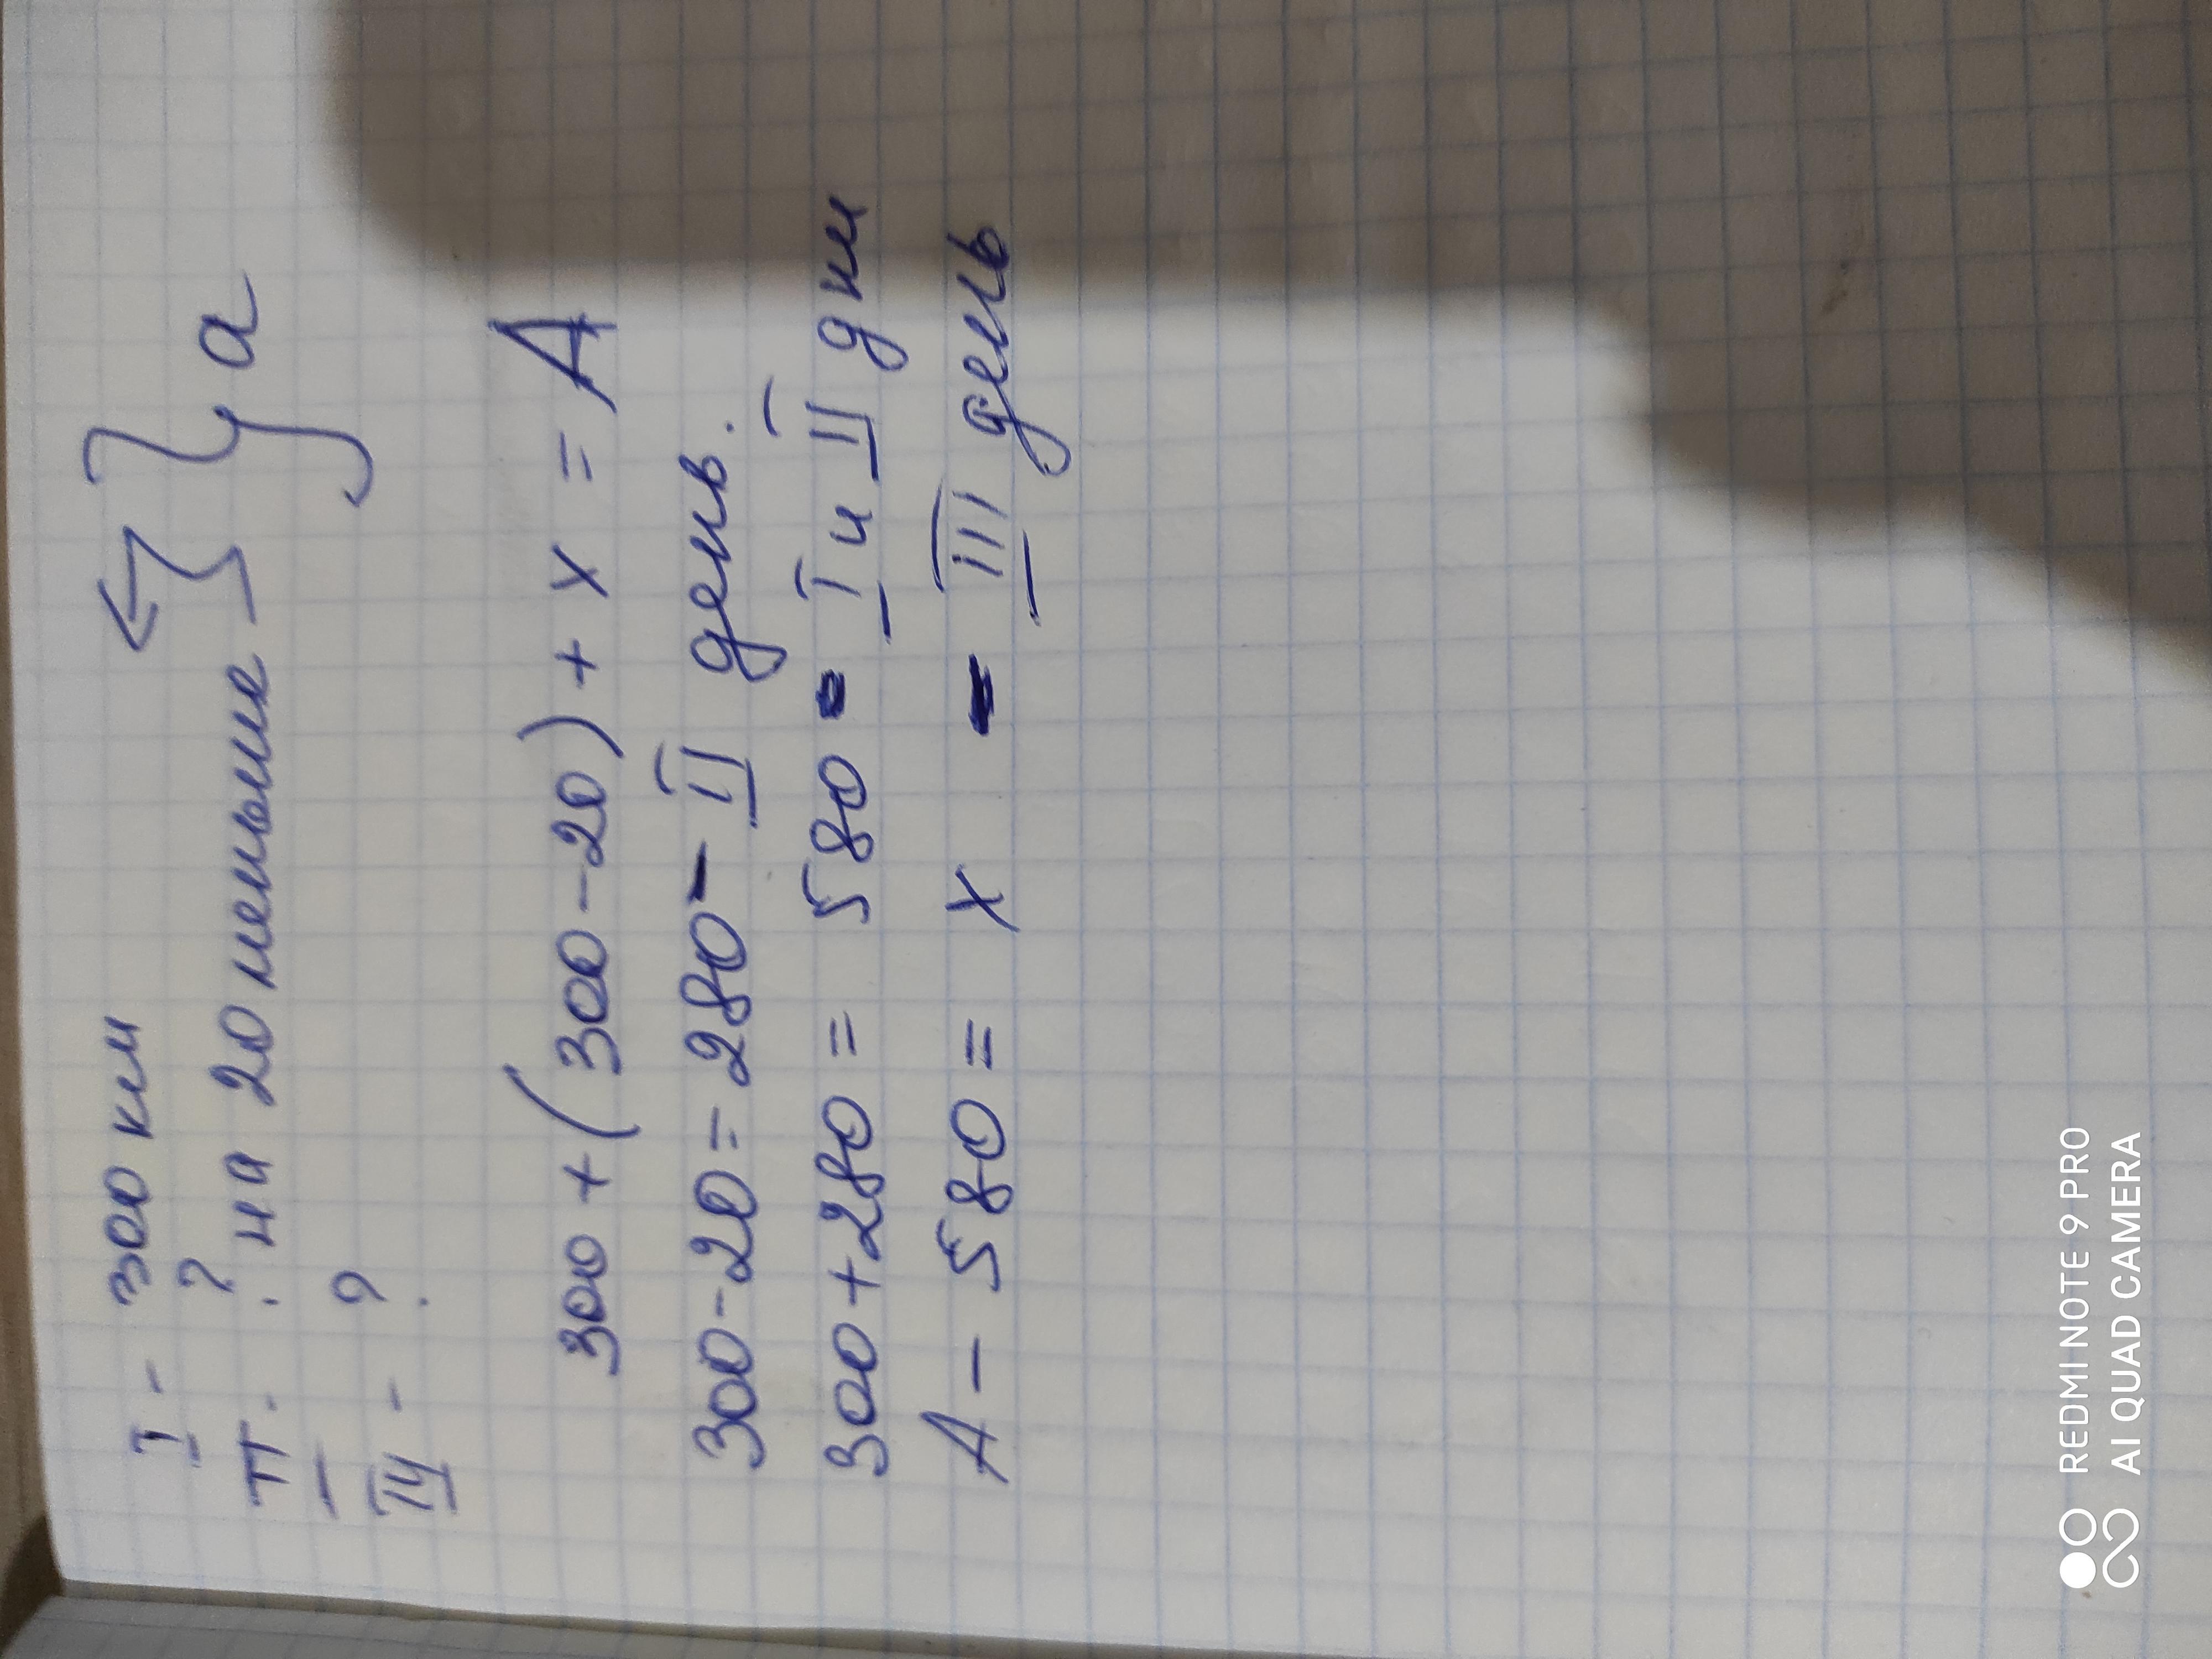 I - 300 км
II - ? на 20 меньше
III - ?
} а
300 + (300 - 20) + х = А
300 - 20 = 280 - II день.
300 + 280 = 580 - I и II дни
А - 580 = х - III день
REDMI NOTE 9 PRO
AI QUAD CAMERA